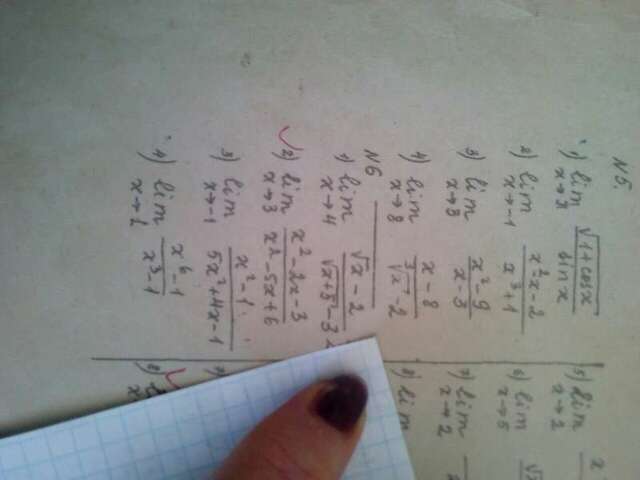 N5.
1) lim x→π √(1+cosx) / sinx
2) lim x→-1 x²-x-2 / x³+1
3) lim x→3 x²-9 / x-3
4) lim x→8 x-8 / ∛x-2
N6
1) lim x→4 √x-2 / √(x+5)-3
2) lim x→3 x²-2x-3 / x²-5x+6
3) lim x→-1 x²-1 / 5x²+4x-1
4) lim x→1 x⁶-1 / x³-1
5) lim x→2
6) lim x→5
7) lim x→2
8) lim